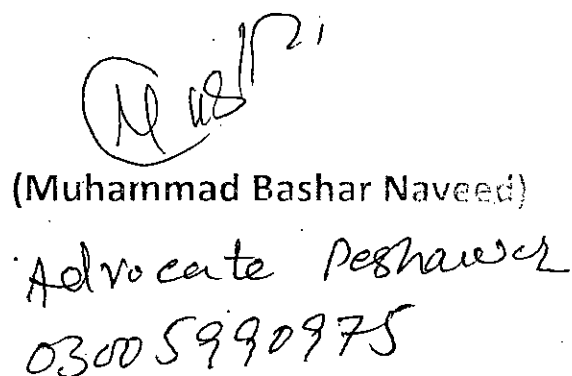 (Muhammad Bashar Naveed)
Advocate Peshawar
03005990975